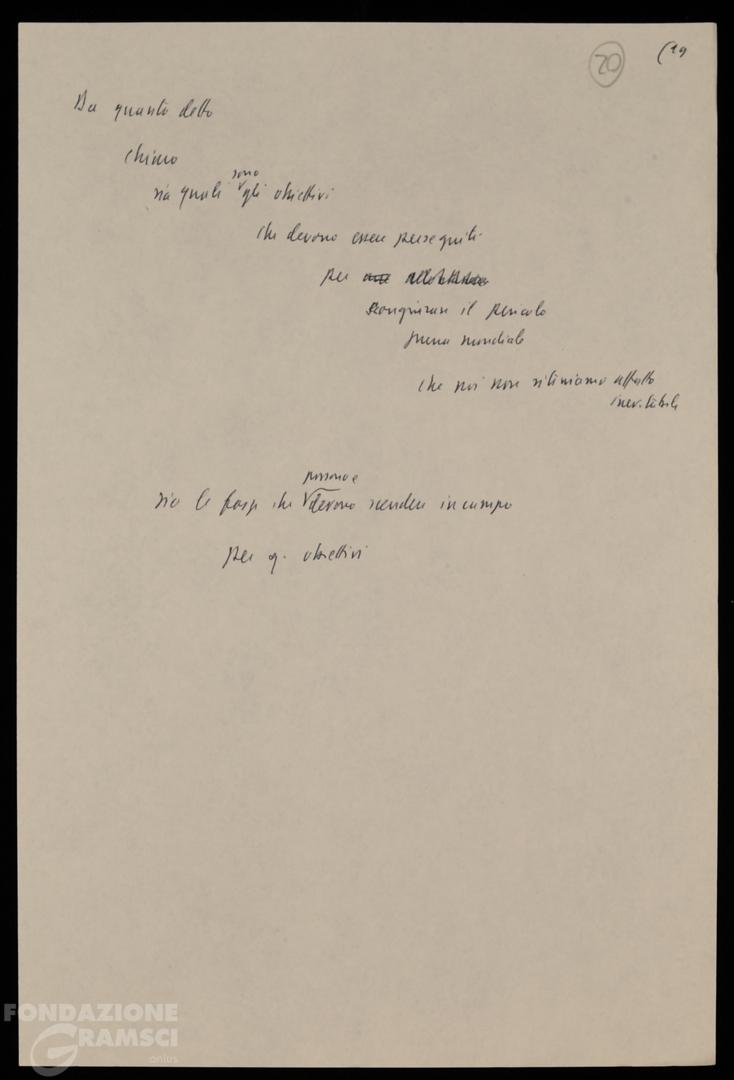 20 (19
Da quanto detto
chiaro
sia quali sono gli obiettivi
che devono essere perseguiti
per
scongiurare il pericolo
guerra mondiale
che noi non riteniamo affatto
inevitabile
sia le forze che possono e devono scendere in campo
per q. obiettivi
FONDAZIONE
GRAMSCI
onlus